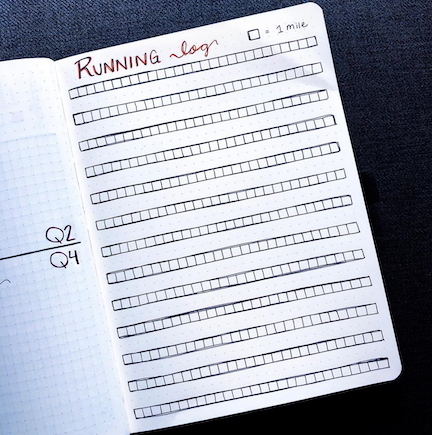 RUNNING log
□ = 1 mile
Q2
Q4